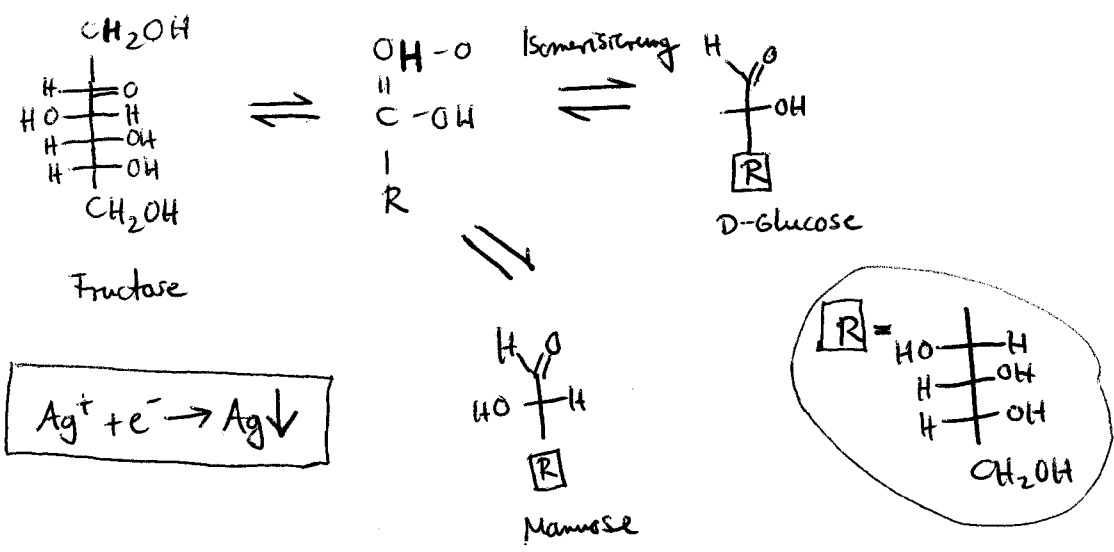 CH₂OH
H O
HO H
H OH
H OH
CH₂OH
Fructose
OH-O
C-OH
R
Isomerisierung
H O
OH
R
D-Glucose
H O
HO H
R
Mannose
Ag⁺ + e⁻ → Ag↓
R =
HO H
H OH
H OH
CH₂OH